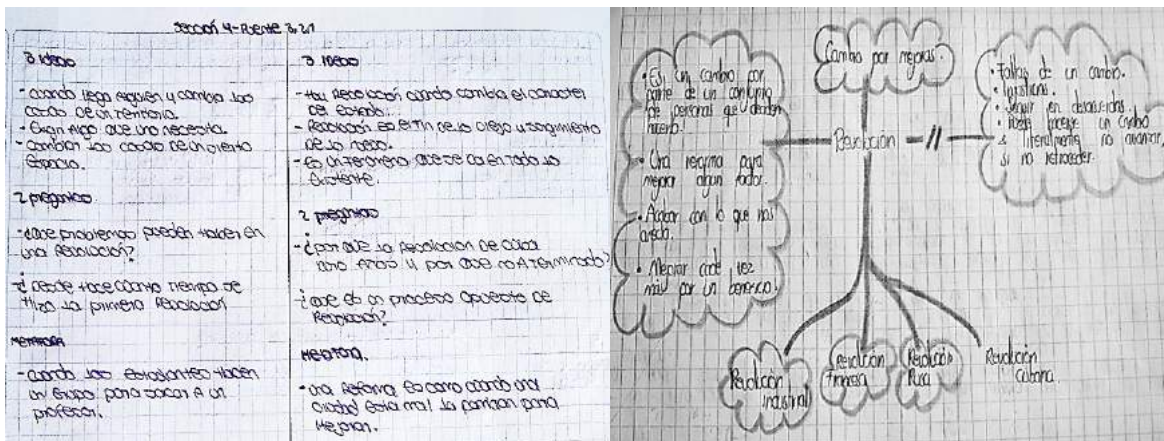 Sección 4-Puente 3,2,1
3 ideas
-cuando llega alguien y cambia las
cosas de un territorio.
- Exijan Algo que uno necesita.
- cambiar las cosas de un cierto
espacio.
2 preguntas
-¿que problemas pueden haber en
una Revolución?
¿desde hace cuanto tiempo se
hizo la primera Revolución
METAFORA
-cuando los estudiantes hacen
un grupo para sacar A un
profesor.
3 Ideas
-Hay Revolución cuando cambia el caracter
del Estado.
- Revolución es el fin de lo viejo y surgimiento
de lo nuevo.
-Es un fenomeno que se da en todo lo
existente.
2 preguntas
-¿por que la Revolucion de Cuba
años y por que no A terminado?
¿que es un proceso opuesto de
Revolución?
Metafora.
-una Reforma es como cuando una
ciudad esta mal la para
Mejorar.
Cambio por mejoras.
• Es un cambio por
parte de un conjunto
de personal que deciden
hacerlo.
• Una para
mejorar algun
• Acabar con lo que nos
• Mejorar cada vez
más por un beneficio.
Revolución
• Fallas de un cambio.
• Seguir en
• Puede hacerse un cambio
y literalmente no avanzar,
si no retroceder.
Revolución
industrial
Revolución
Francesa
Revolución
Rusa
Revolución
Cubana